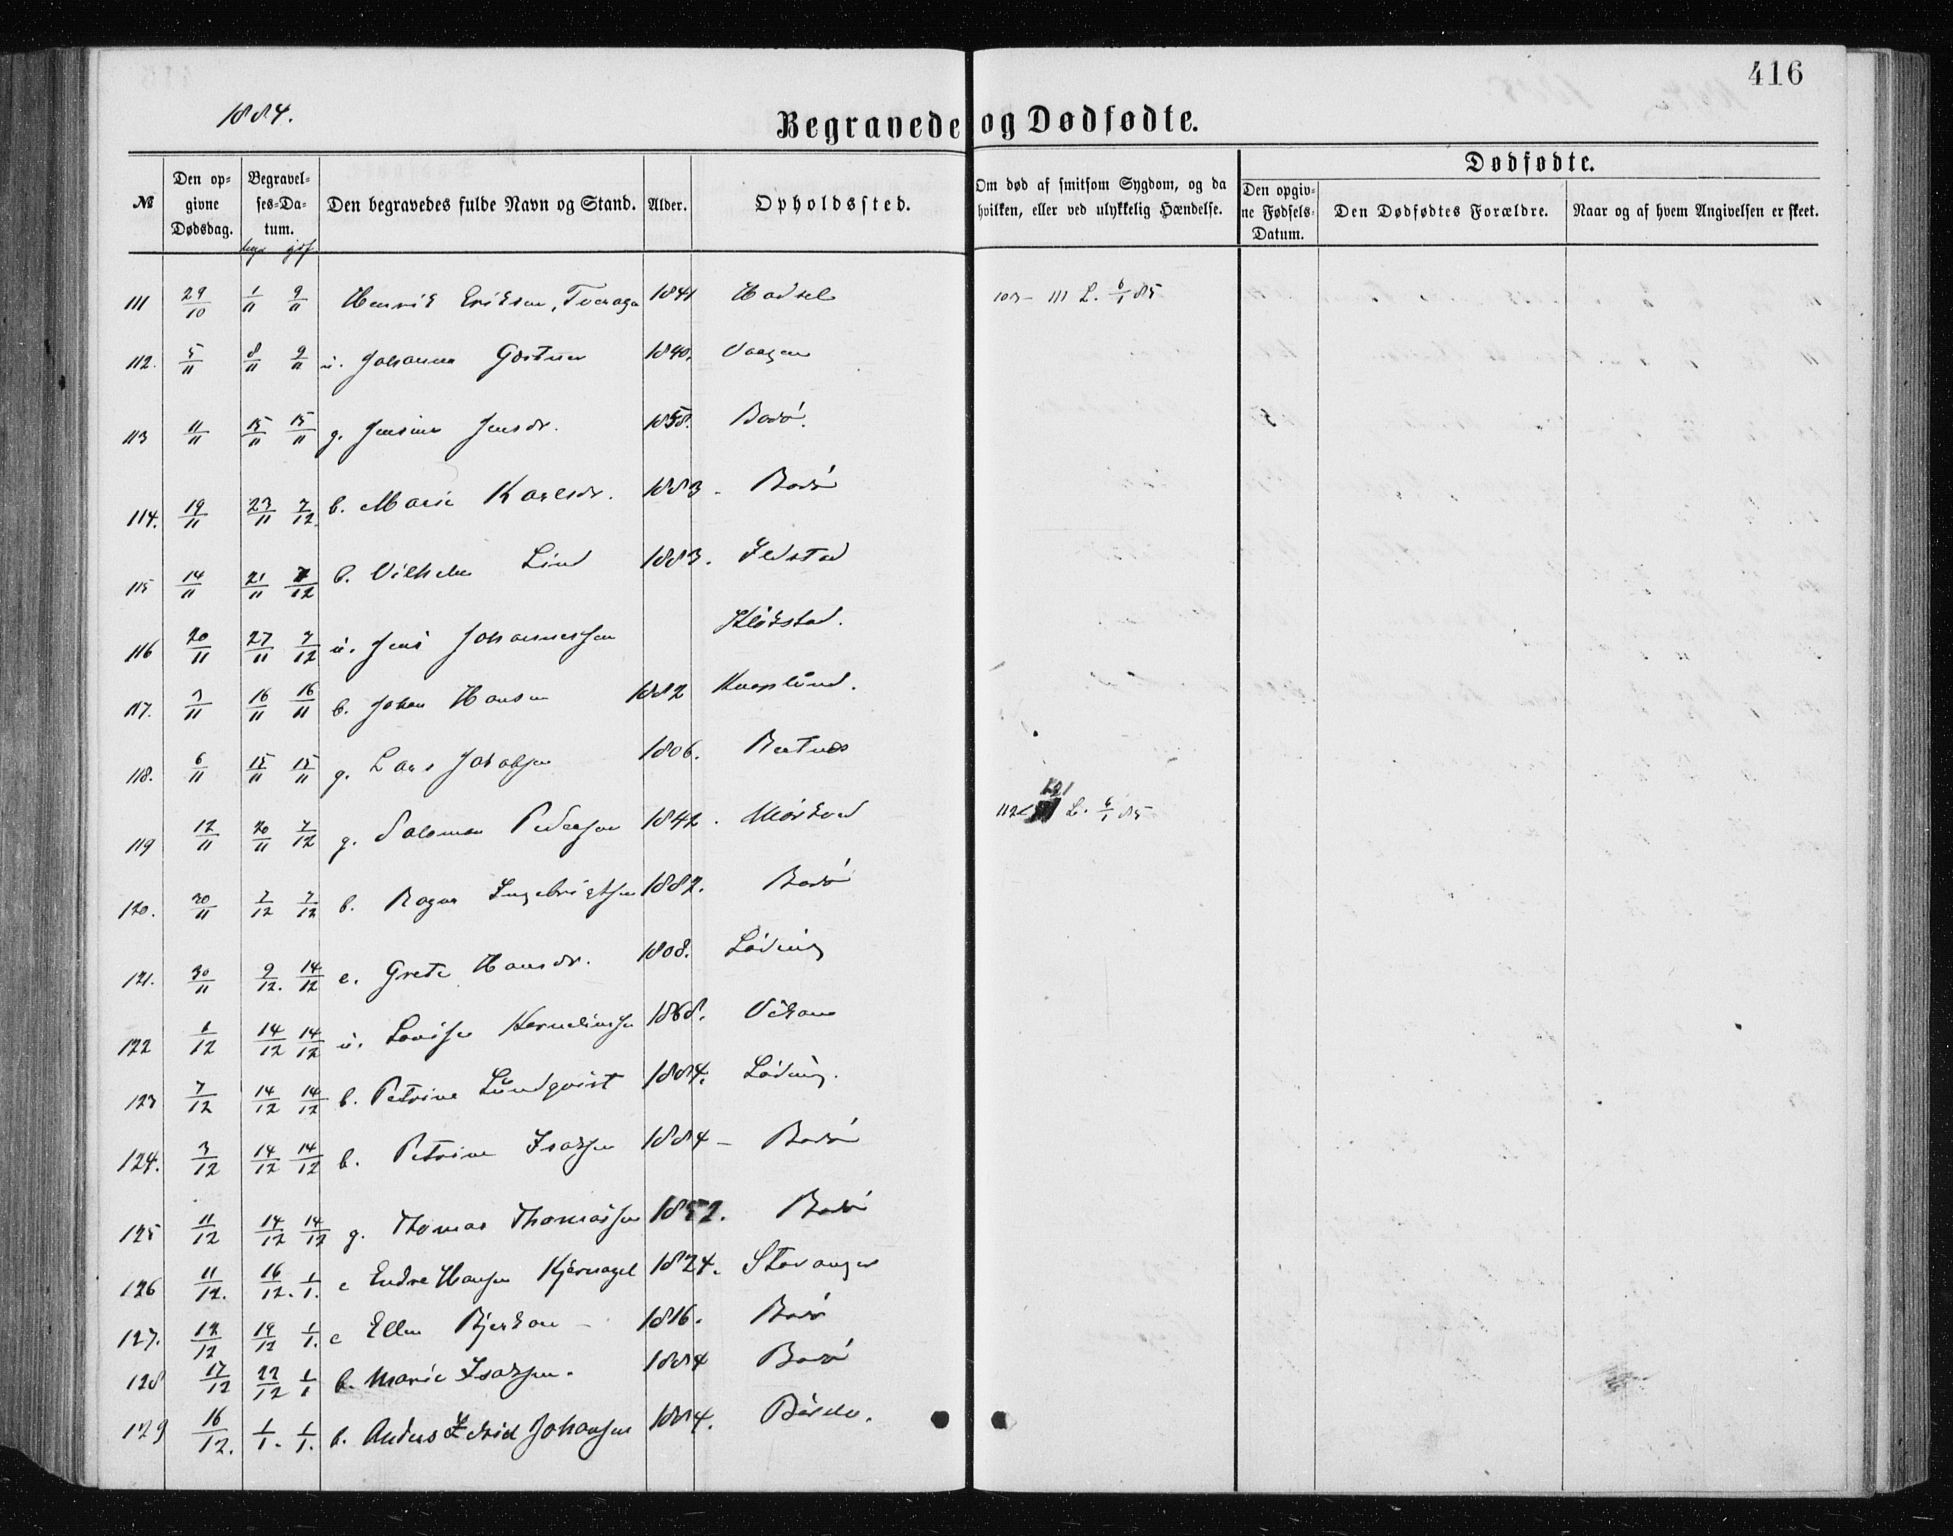 416
1884.
Begravede og Dødfødte.
№ Den opgivne Dødsdag. Begravelses-Datum. Den begravedes fulde Navn og Stand. Alder. Opholdssted. Om død af smitsom Sygdom, og da hvilken, eller ved ulykkelig Hændelse. Dødfødte. Den opgivne Fødsels-Datum. Den Dødfødtes Forældre. Naar og af hvem Angivelsen er skeet.
111 29/10 1/11 9/11 Henrik Eriksen, 1841 Hadsel 103-111 L. 6/1 85
112. 5/11 8/11 9/11 u. Johanna 1840. Vaagen
113 11/11 15/11 15/11 g. Jensine Jensdr. 1858. Bodø.
114. 19/11 23/11 7/12 b. Marie Karlsdr. 1883. Bodø
115 14/11 21/11 7/12 b. Vilhelm Lind 1883. Ildstad
116 20/11 27/11 7/12 u. Jens Johannessen Kløkstad.
117. 3/11 16/11 16/11 b. Johan Hansen 1882 Kvaplund.
118. 6/11 15/11 15/11 g. Lars Jakobsen 1806. Bertnes
119 12/11 20/11 7/12 g. Salomon Pedersen 1842. Mørkved 112- 121 L. 6/1 85
120. 30/11 7/12 7/12 b. Ragna Ingebrigtsen 1882. Bodø
121. 30/11 9/12. 14/12 e. Grete Hansdr. 1808. Løding
122 6/12 14/12 14/12 u. Lovise Korneliussen 1868. Vikan
123 7/12 14/12 14/12 b. Petrine Lundqvist 1884. Løding.
124. 3/12 14/12 14/12 b. Petrine Isaksen 1884 Bodø
125 11/12 14/12 14/12 g. Thomas Thomassen 1852. Bodø
126 11/12. 16/12. 1/1. e Endre Hansen Kjernagel 1824. Stavanger
127. 12/12 19/12 1/1. e Ellen Bjerkan 1816. Bodø
128 17/12 22/12 1/1 b. Marie Isaksen. 1884 Bodø
129 16/12. 1/1. 1/1. b. Anders Johansen 1884.